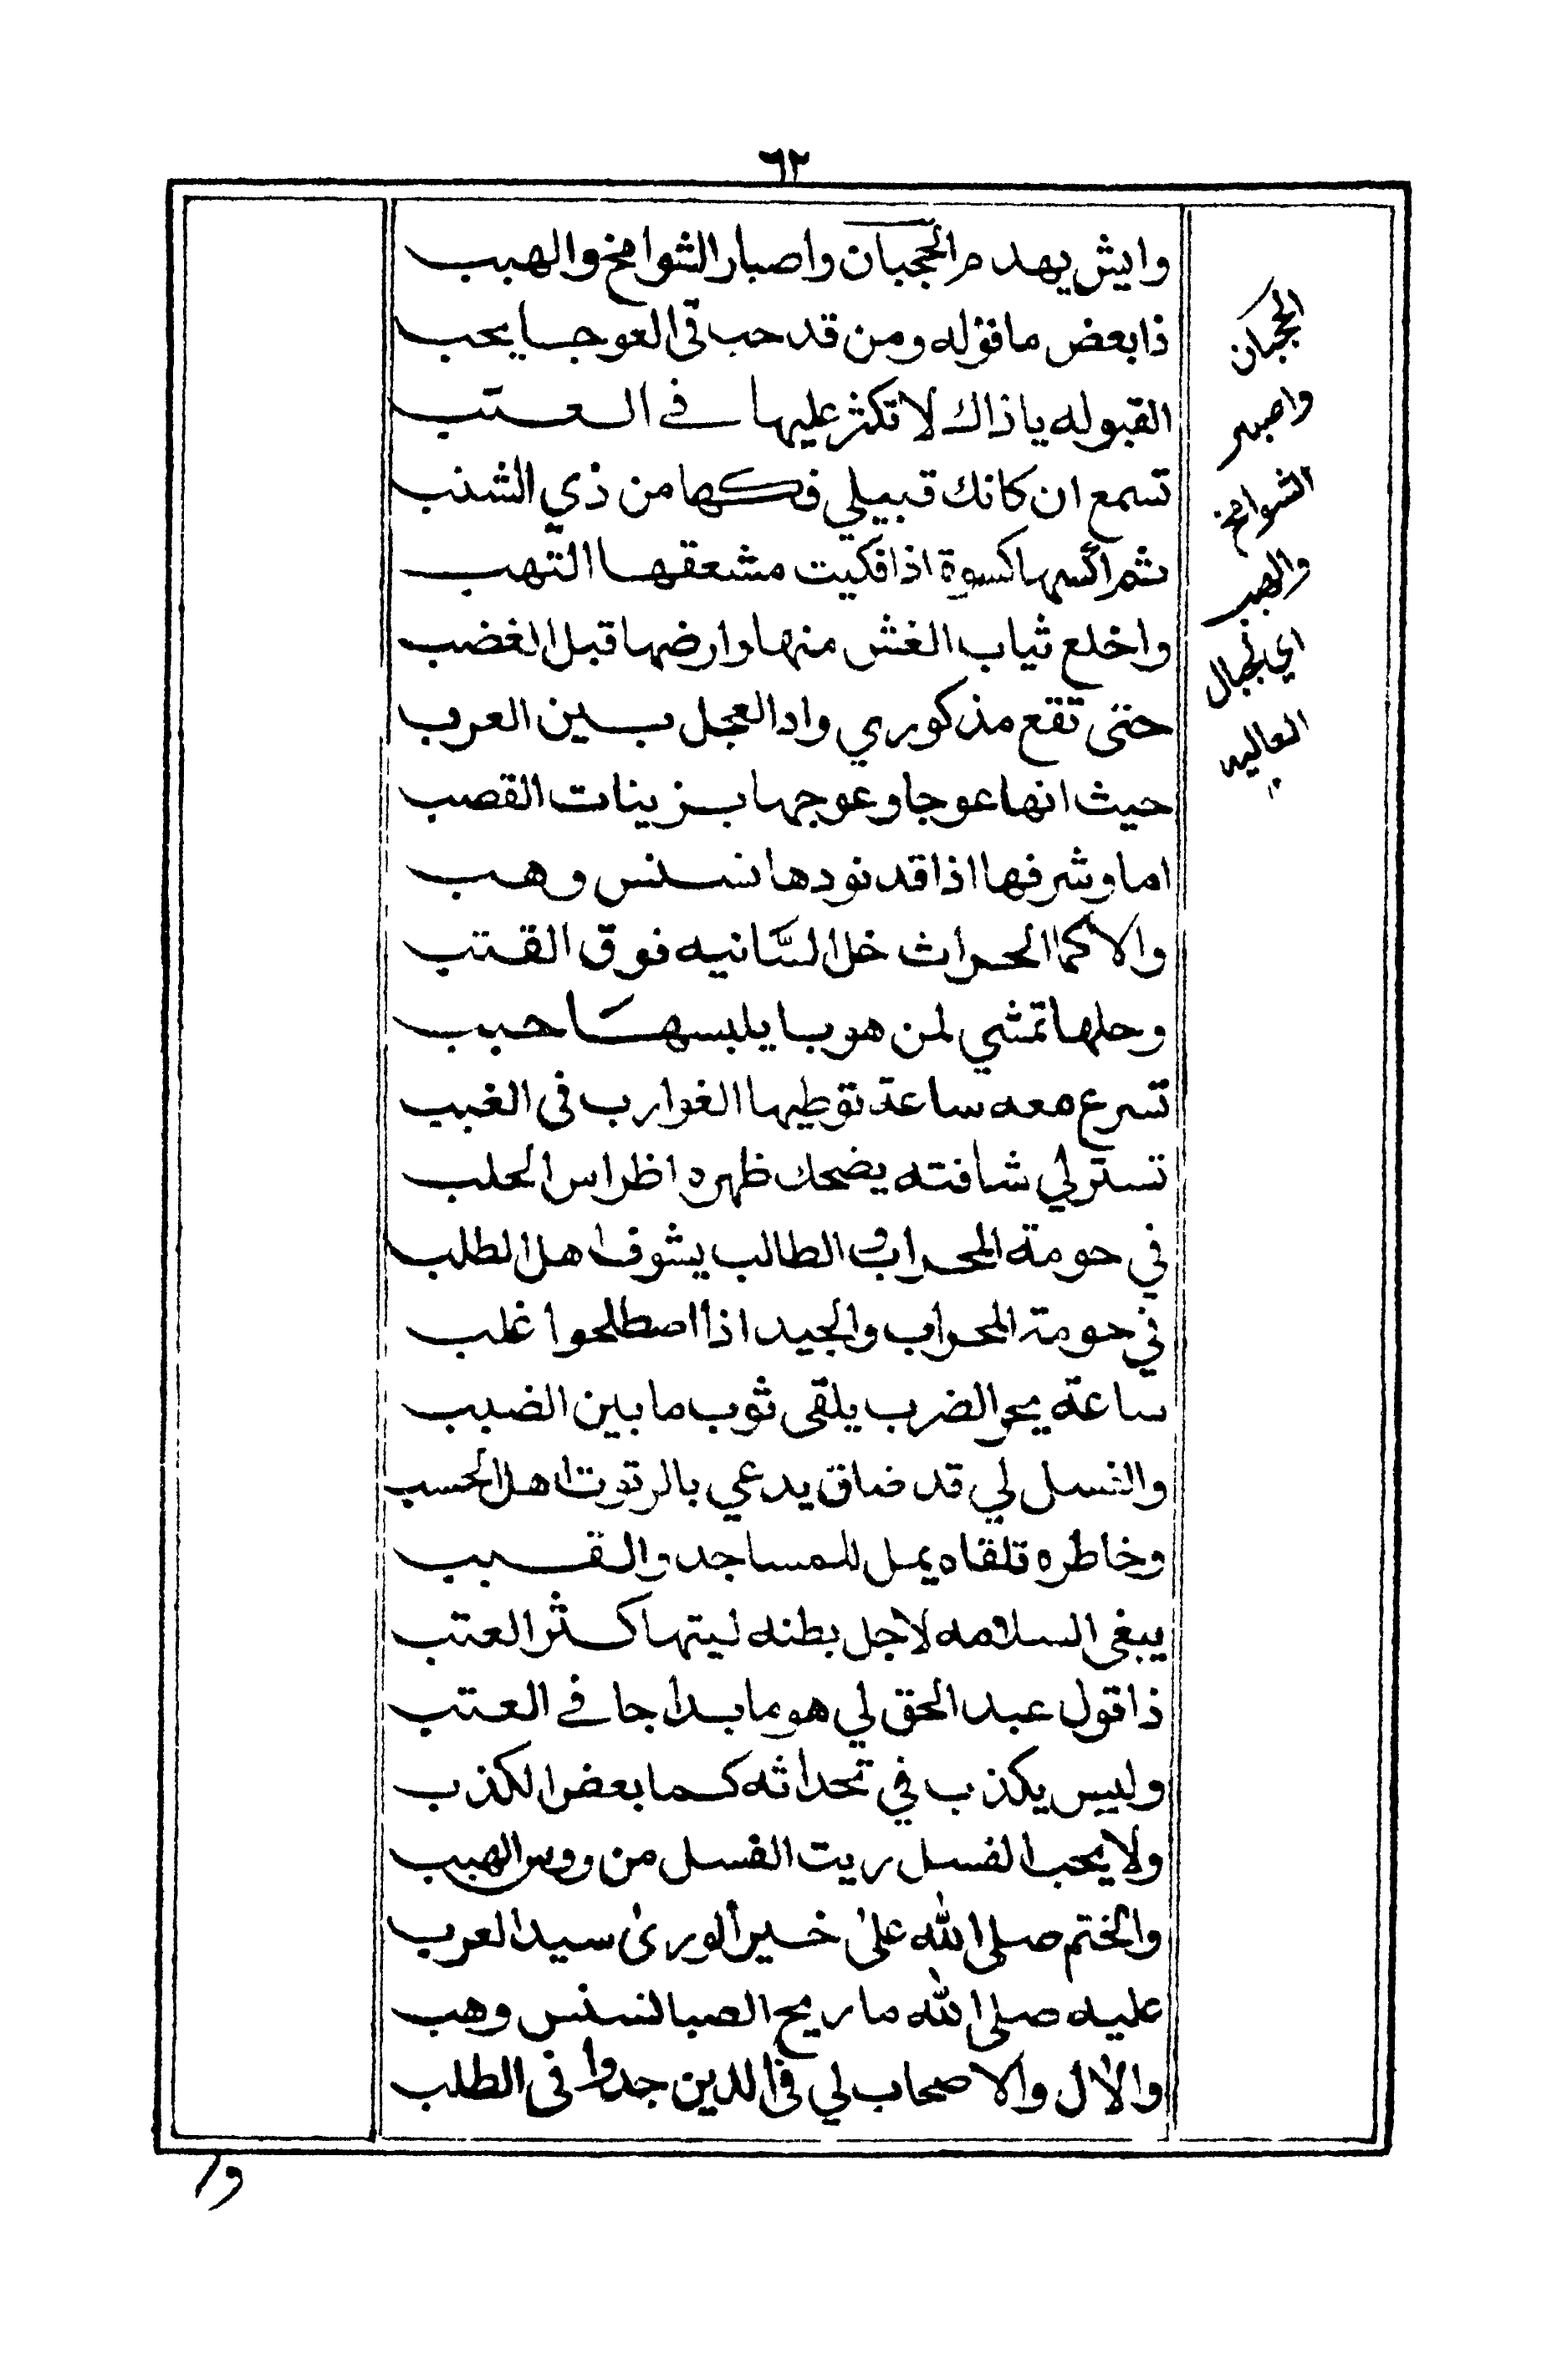 ٦٢
وايش يهدم الحجبان واصبار الشوامخ والهبب
ذا بعض ما فوله ومن قد حب في العوجا يحب
القبوله يا ذاك لا تكثر عليها في العتب
تسمع ان كانك قبيلي فكها من ذي الشنب
ثم اكسها كسوة اذا فكيت مشعقها التهب
واخلع ثياب الغش منها وارضها قبل الغضب
حتى تقع مذكوري واد العجل بين العرب
حيث انها عوجا وعوجها بزينات القصب
اما وشرفها اذا قد نودها نسنس وهب
والا كما الحراث خل السانيه فوق القتب
وحلها تمشي لمن هو با يلبسها حبب
تسرع معه ساعة توطيها الغوارب في الغبب
تستر لي شافته يضحك ظهره اظراس الحلب
في حومة المحراب والطالب يشوف اهل الطلب
في حومة المحراب والجيد اذا اصطلحوا غلب
ساعة يحو الضرب يلقى ثوب ما بين الضبب
والفسل لي قد ضاق يدعي بالرتوت اهل الحسب
وخاطره تلقاه يمل للمساجد والقبب
يبغى السلامه لاجل بطنه ليتها كثر العتب
ذا قول عبد الحق لي هو ما بدا جا في العتب
وليس يكذب في تحداثه كما بعض الكذب
ولا يحب الفسل ريت الفسل من روس الهبب
والختم صلى الله على خير الورى سيد العرب
عليه صلى الله ما ريح الصبا نسنس وهب
والال والاصحاب لي في الدين جدوا في الطلب
الحجبان
واصبر
الشوامخ
والهبب
اي الجبال
العاليه